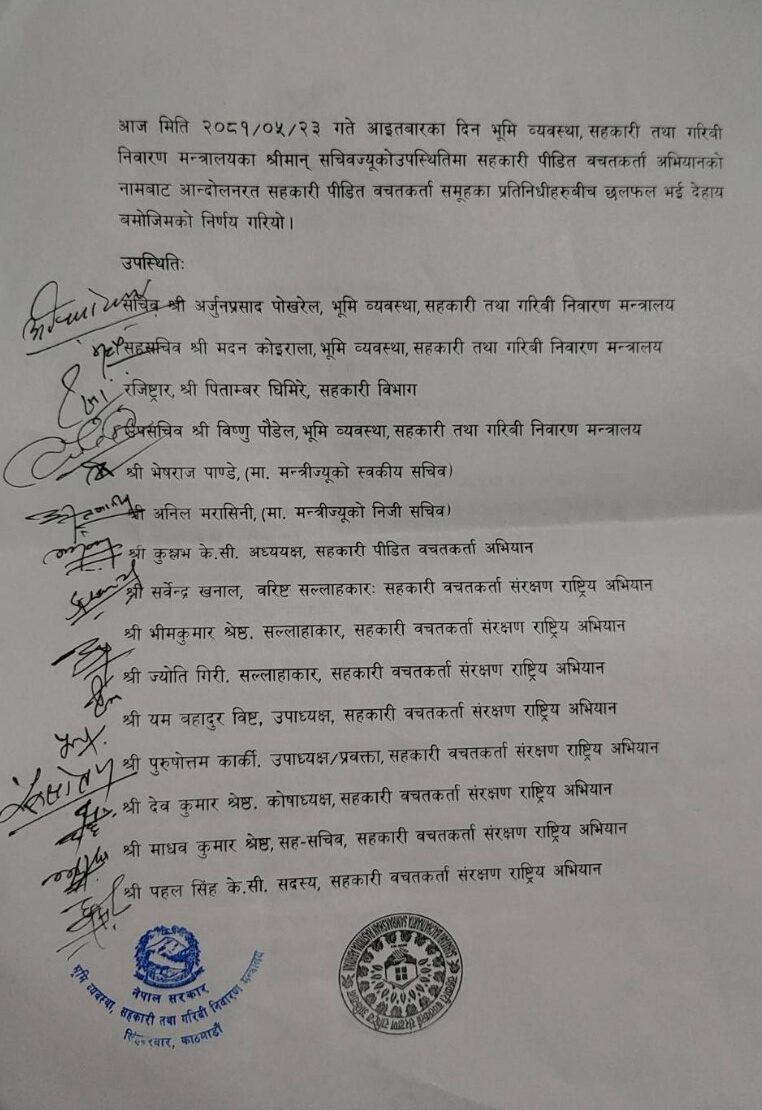 आज मिति २०८१/०५/२३ गते आइतबारका दिन भूमि व्यवस्था, सहकारी तथा गरिवी
निवारण मन्त्रालयका श्रीमान् सचिवज्यूकोउपस्थितिमा सहकारी पीडित वचतकर्ता अभियानको
नामबाट आन्दोलनरत सहकारी पीडित वचतकर्ता समूहका प्रतिनिधीहरुबीच छलफल भई देहाय
बमोजिमको निर्णय गरियो।
उपस्थितिः
सचिव श्री अर्जुनप्रसाद पोखरेल, भूमि व्यवस्था, सहकारी तथा गरिबी निवारण मन्त्रालय
सहसचिव श्री मदन कोइराला, भूमि व्यवस्था, सहकारी तथा गरिबी निवारण मन्त्रालय
रजिष्ट्रार, श्री पिताम्बर घिमिरे, सहकारी विभाग
उपसचिव श्री विष्णु पौडेल, भूमि व्यवस्था, सहकारी तथा गरिबी निवारण मन्त्रालय
श्री भेषराज पाण्डे, (मा. मन्त्रीज्यूको स्वकीय सचिव)
श्री अनिल मरासिनी, (मा. मन्त्रीज्यूको निजी सचिव)
श्री के.सी. अध्ययक्ष, सहकारी पीडित वचतकर्ता अभियान
श्री सर्वेन्द्र खनाल, वरिष्ट सल्लाहकारः सहकारी वचतकर्ता संरक्षण राष्ट्रिय अभियान
श्री भीमकुमार श्रेष्ठ. सल्लाहाकार, सहकारी वचतकर्ता संरक्षण राष्ट्रिय अभियान
श्री ज्योति गिरी. सल्लाहाकार, सहकारी वचतकर्ता संरक्षण राष्ट्रिय अभियान
श्री यम वहादुर विष्ट, उपाध्यक्ष, सहकारी वचतकर्ता संरक्षण राष्ट्रिय अभियान
श्री पुरुषोत्तम कार्की. उपाध्यक्ष/प्रवक्ता, सहकारी वचतकर्ता संरक्षण राष्ट्रिय अभियान
श्री देव कुमार श्रेष्ठ. कोषाध्यक्ष, सहकारी वचतकर्ता संरक्षण राष्ट्रिय अभियान
श्री माधव कुमार श्रेष्ठ, सह-सचिव, सहकारी वचतकर्ता संरक्षण राष्ट्रिय अभियान
श्री पहल सिंह के.सी. सदस्य, सहकारी वचतकर्ता संरक्षण राष्ट्रिय अभियान
नेपाल सरकार
भूमि व्यवस्था, सहकारी तथा गरिबी निवारण मन्त्रालय
काठमाडौं